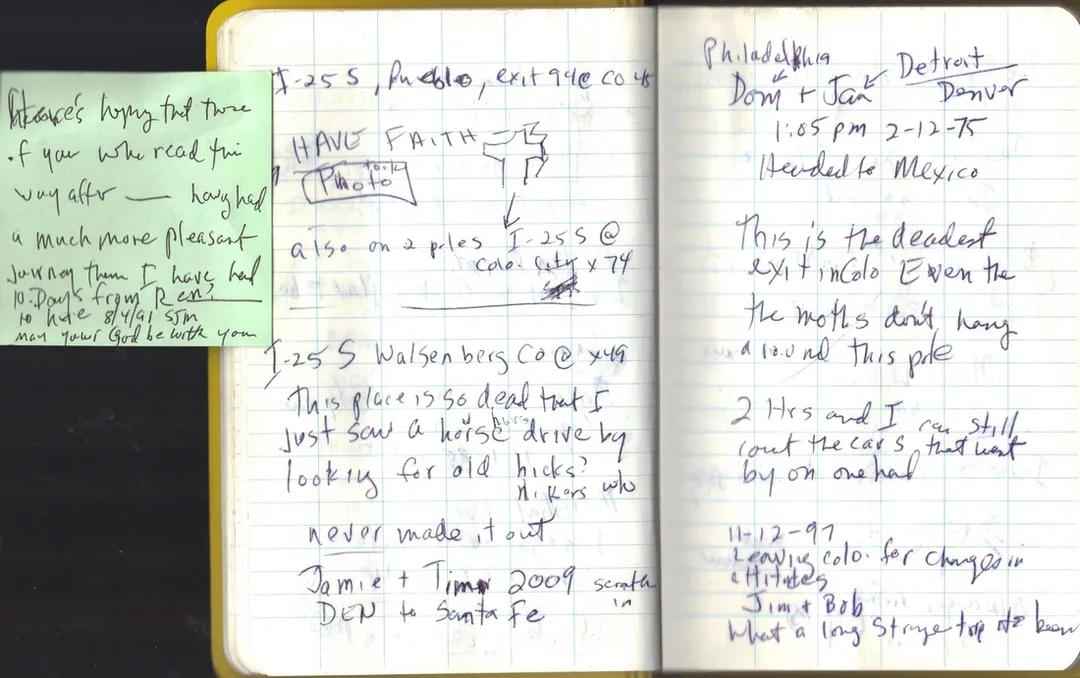 Here's hoping that those
of you who read this
way after — having had
a much more pleasant
Journey then I have had
10. Days from Reno
to here 8/4/91 SJM
may your God be with you
I-25 S, Pueblo, exit 94@ CO 45
HAVE FAITH
took
Photo
also on 2 poles I-25 S @
Colo. City x 74
I-25 S Walsenberg CO @ x49
This place is so dead that I
just saw a horse drive by
looking for old hicks?
Hikers who
never made it out
Jamie + Tim 2009 scratch
in
DEN to Santa Fe
Philadelphia
Detroit
Dom + Jan
Denver
1:05 pm 2-12-75
Headed to Mexico
This is the deadest
exit in Colo Even the
the moths don't hang
around this pole
2 Hrs and I can still
cout the cars that went
by on one had
11-12-97
Leaving Colo. for changes in
attitutes
Jim + Bob
What a long Strange trip its been